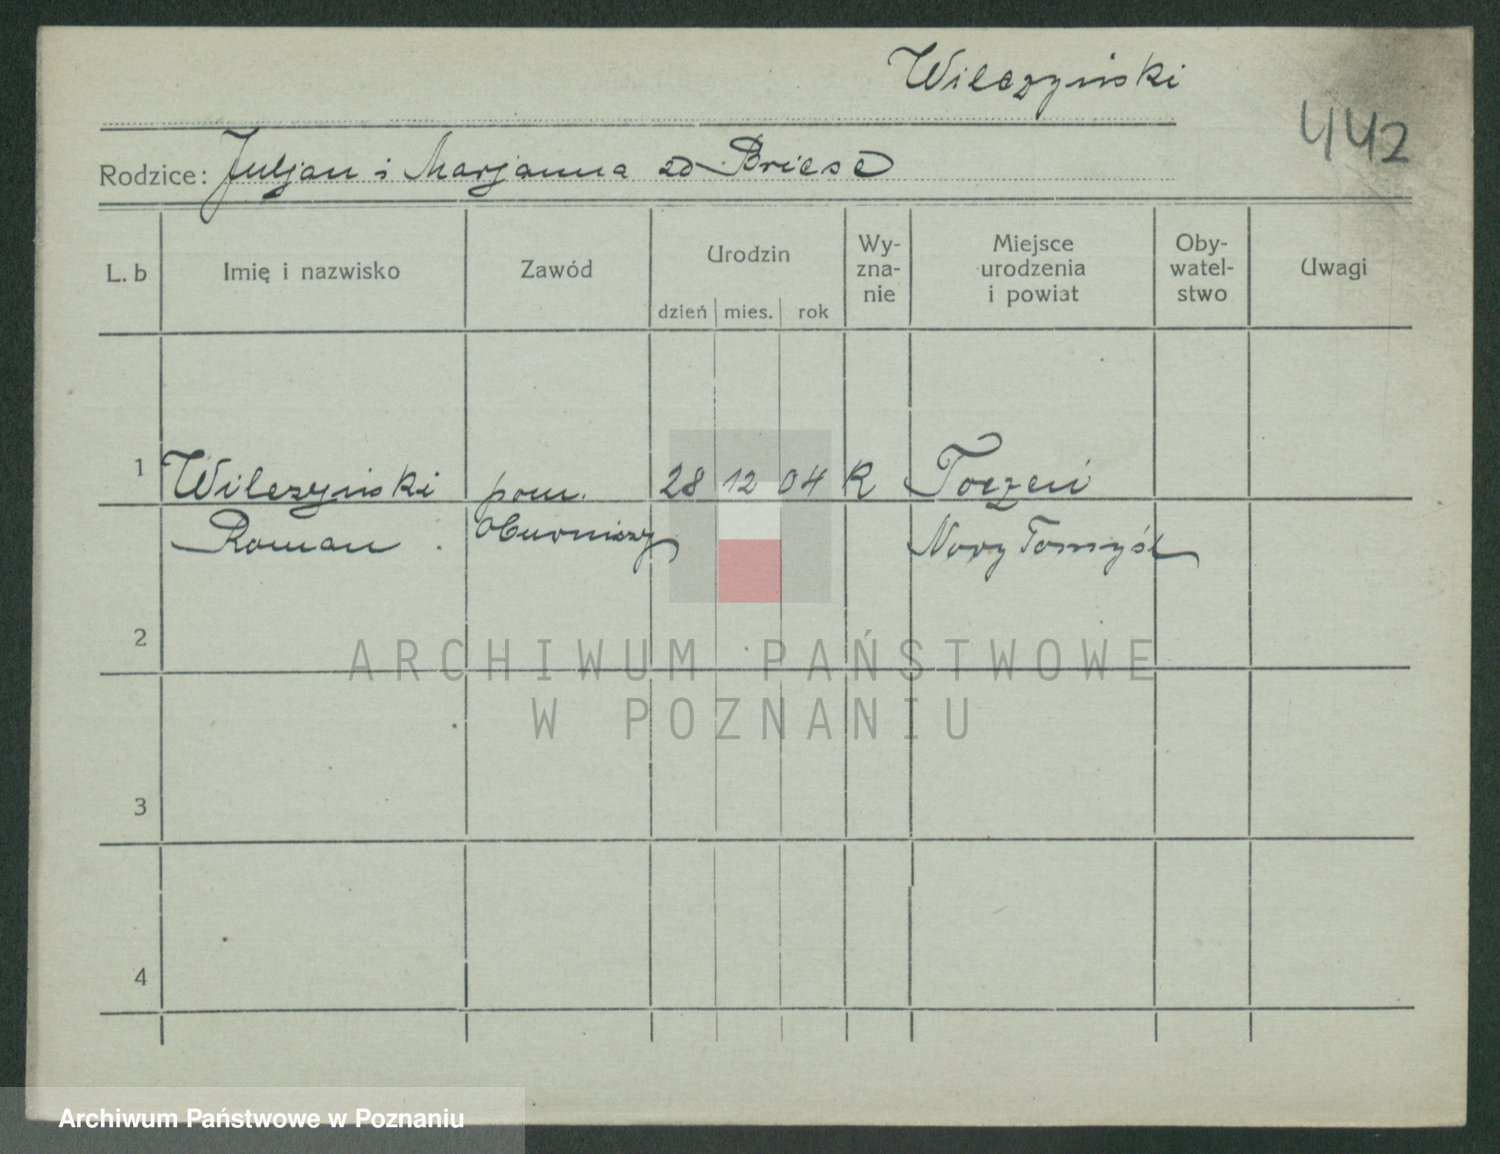 Wilczyński
442
Rodzice: Juljan i Marjanna zd Briese
L. b
Imię i nazwisko
Zawód
Urodzin
dzień mies. rok
Wy-
zna-
nie
Miejsce
urodzenia
i powiat
Oby-
watel-
stwo
Uwagi
1 Wilczyński pom. 28 12 04 K
Roman
Nowy Tomyśl
2
ARCHIWUM PAŃSTWOWE
W POZNANIU
3
4
Archiwum Państwowe w Poznaniu